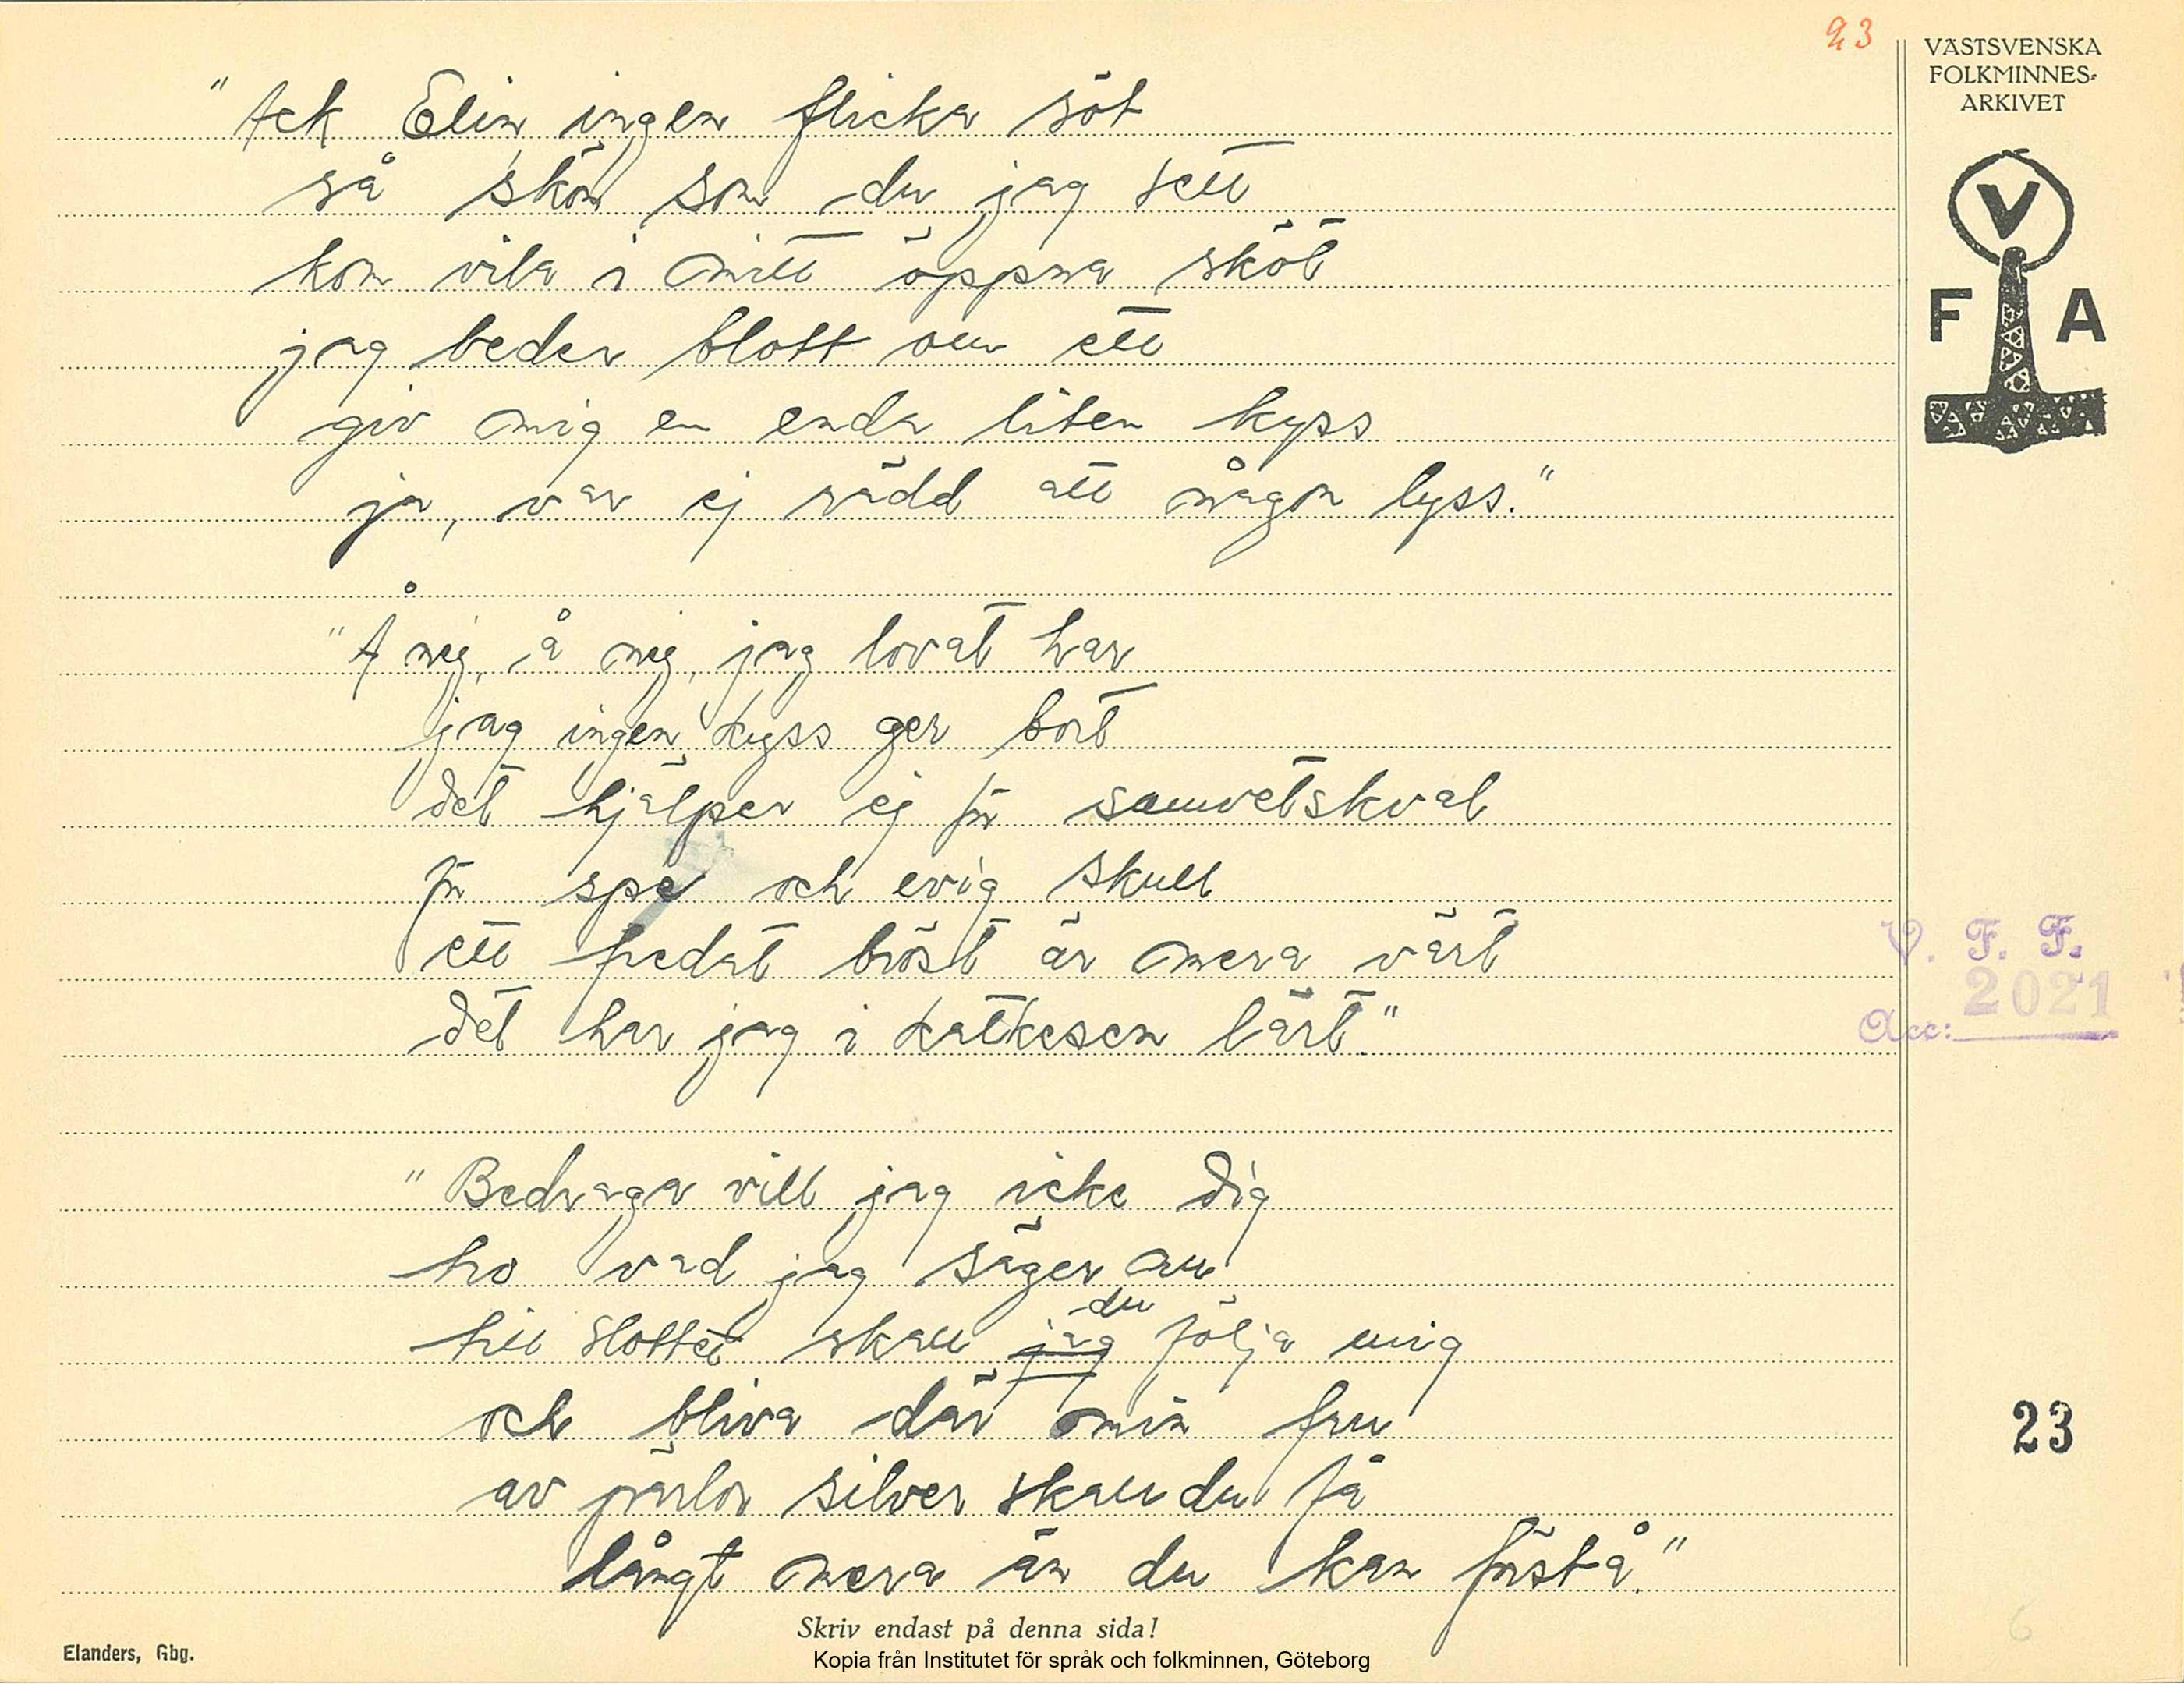 23
VÄSTSVENSKA
FOLKMINNES-
ARKIVET
V
F A
"Ack Elin ingen flicka söt
så skön som du jag sett
kom vila i mitt öppna sköt
jag beder blott om ett
giv mig en enda liten kyss
ja, var ej rädd att någon lyss."
"Å nej, å nej, jag lovat har
jag ingen kyss ger bort
det hjälper ej för samvetskval
för spe och evig skull
ett fredat bröst är mera värt
det har jag i katkesen lärt."
V. F. F.
2021
Acc:
"Bedraga vill jag icke dig
tro vad jag säger nu
till slottet skall jag du följa mig
och bliva där min fru
av pärlor silver skall du få
långt mera än du kan förstå."
23
6
Skriv endast på denna sida!
Elanders, Gbg.
Kopia från Institutet för språk och folkminnen, Göteborg